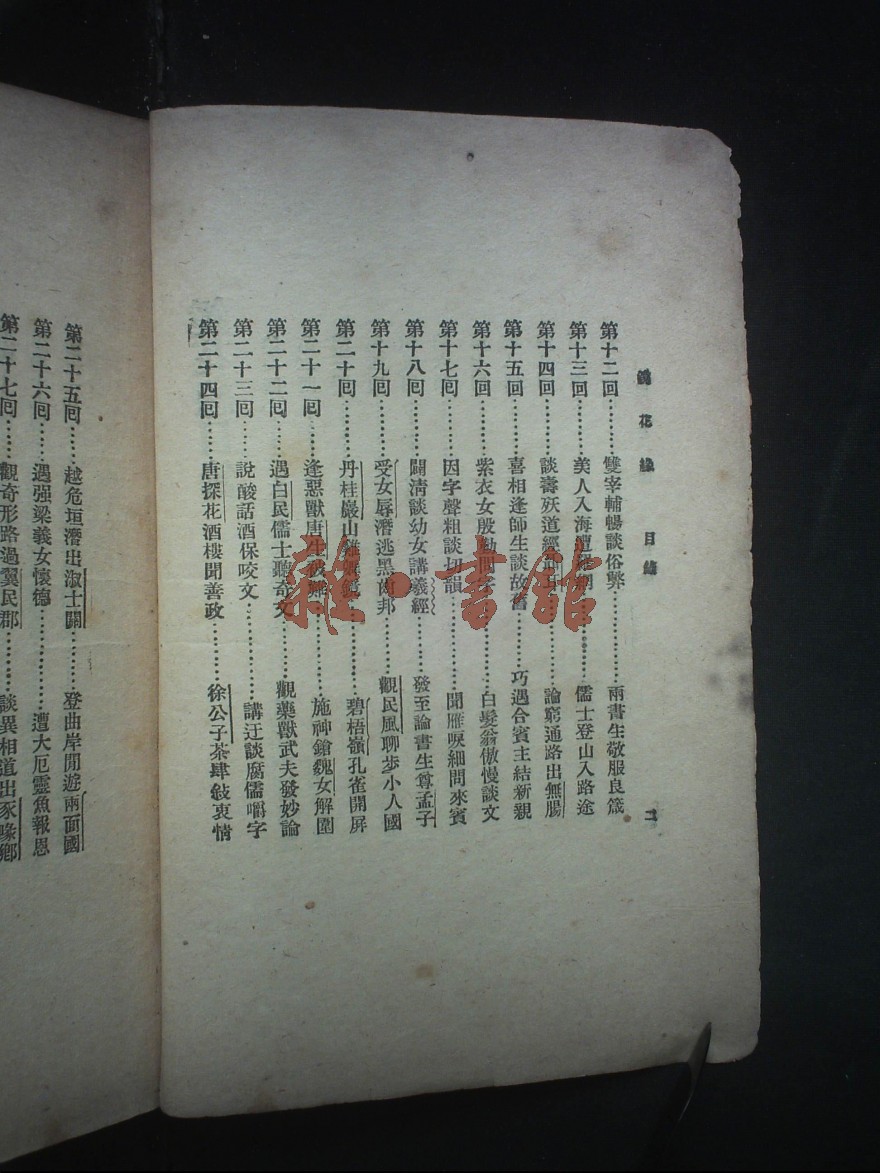 鏡花緣 目錄 二
第十二回………雙宰輔暢談俗弊…………兩書生敬服良箴
第十三回………美人入海遭…………儒士登山入路途
第十四回………談壽殀道經…………論窮通路出無腸
第十五回………喜相逢師生談故舊…………巧遇合賓主結新親
第十六回………紫衣女殷勤問字…………白髮翁傲慢談文
第十七回………因字聲粗談切韻…………聞雁唳細問來賓
第十八回………闢清談幼女講羲經…………發至論書生尊孟子
第十九回………受女辱潛逃黑齒邦…………觀民風聊步小人國
第二十回………丹桂巖山雞舞鏡…………碧梧嶺孔雀開屏
第二十一回……逢惡獸唐生被難…………施神鎗魏女解圍
第二十二回……遇白民儒士聽奇文…………觀藥獸武夫發妙論
第二十三回……說酸話酒保咬文…………講迂談腐儒嚼字
第二十四回……唐探花酒樓聞善政…………徐公子茶肆敍衷情
第二十五回……越危垣潛出淑士關…………登曲岸閒遊兩面國
第二十六回……遇强梁義女懷德…………遭大厄靈魚報恩
第二十七回……觀奇形路過翼民郡…………談異相道出豕喙鄉
雜·書館